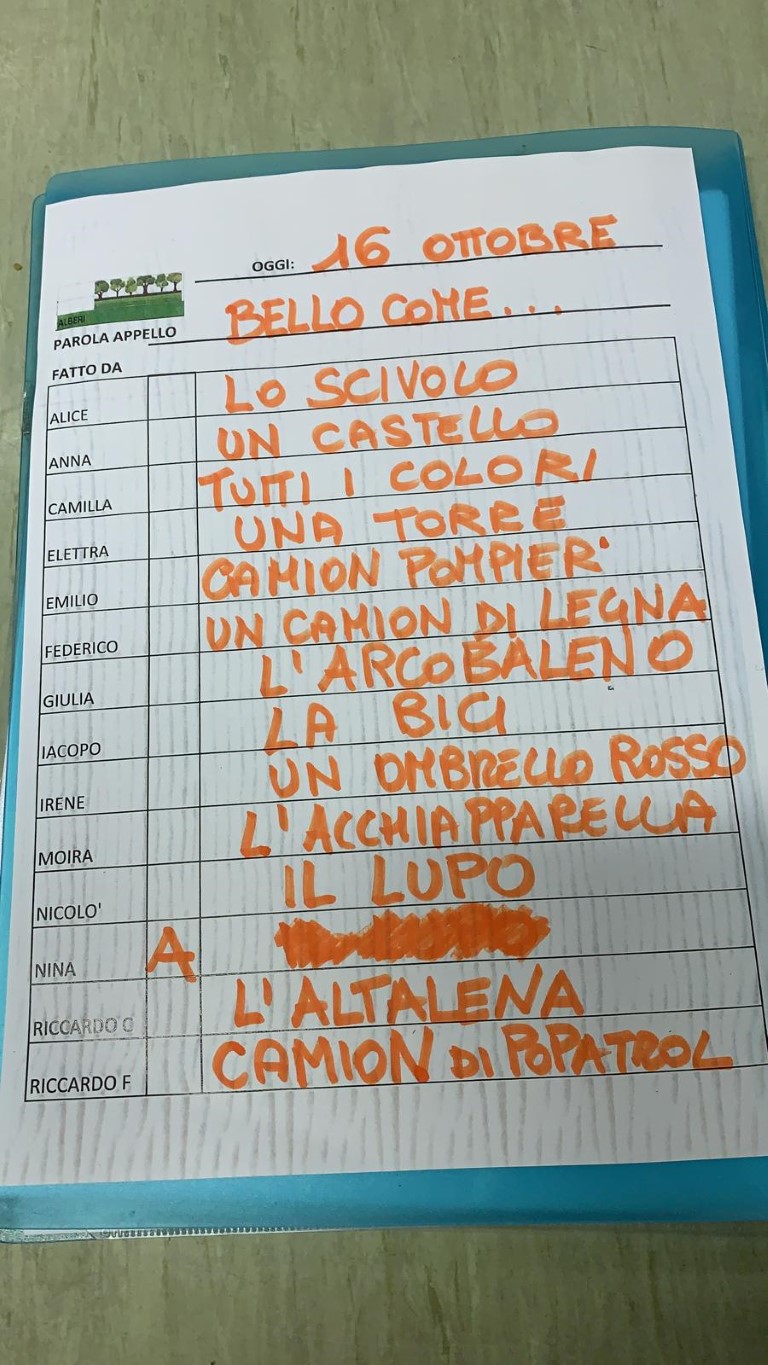 OGGI: 16 OTTOBRE
ALBERI
PAROLA APPELLO BELLO COME...
FATTO DA
ALICE LO SCIVOLO
ANNA UN CASTELLO
CAMILLA TUTTI I COLORI
ELETTRA UNA TORRE
EMILIO CAMION POMPIER'
FEDERICO UN CAMION DI LEGNA
GIULIA L'ARCOBALENO
IACOPO LA BICI
IRENE UN OMBRELLO ROSSO
MOIRA L'ACCHIAPPARELLA
NICOLO' IL LUPO
NINA A
RICCARDO C L'ALTALENA
RICCARDO F CAMION DI POPATROL